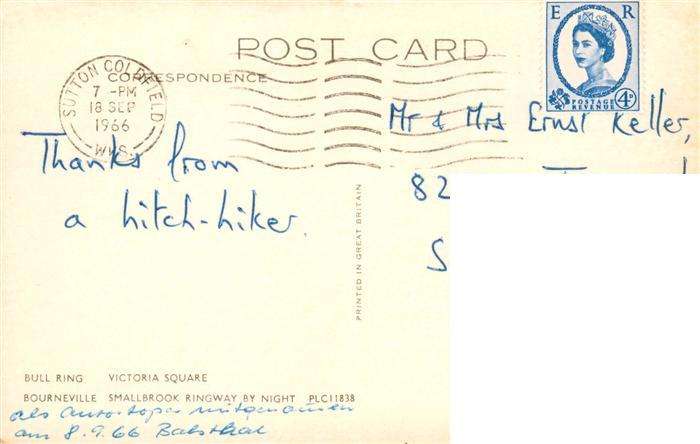 POST CARD
CORRESPONDENCE
SUTTON COLDFIELD
7 -PM
18 SEP
1966
WKS.
E R
POSTAGE
REVENUE
4D
Mr & Mrs Ernst Keller,
82
S
Thanks from
a hitch-hiker.
PRINTED IN GREAT BRITAIN
BULL RING VICTORIA SQUARE
BOURNEVILLE SMALLBROOK RINGWAY BY NIGHT PLC11838
als Autostoper mitgenommen
am 8.9.66 Balsthal